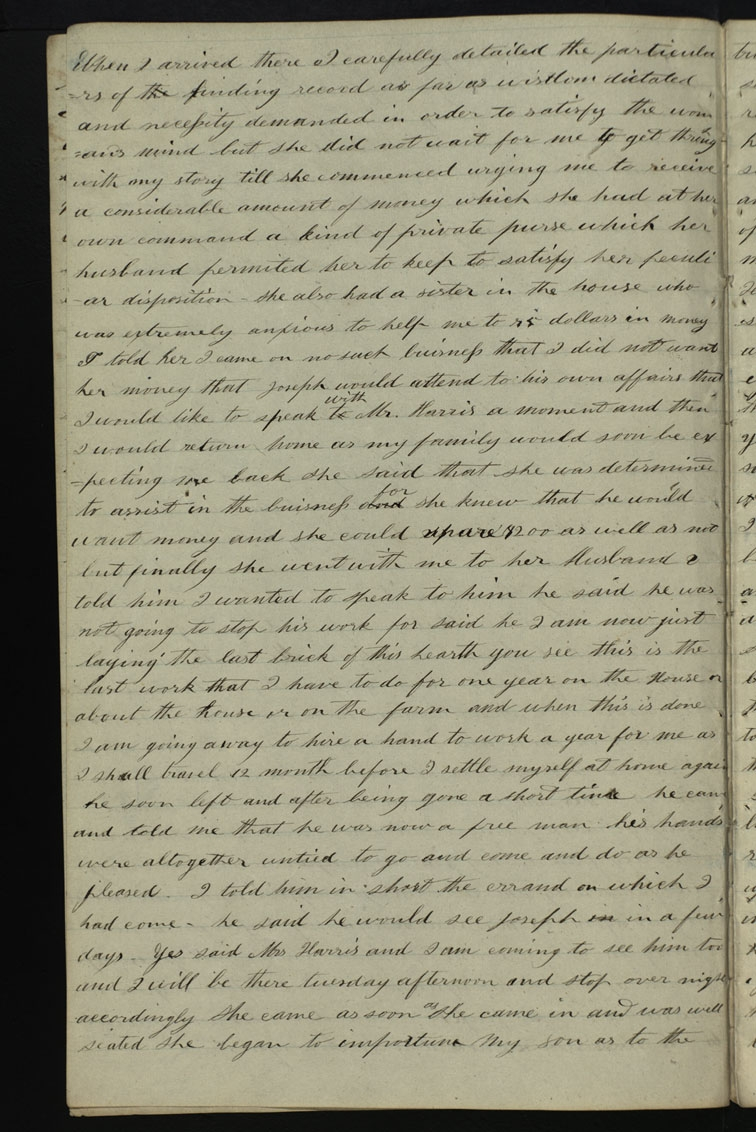 When I arrived there I carefully detailed the particula
-rs of the finding record as far as wisdom dictated
and necessity demanded in order to satisfy the wom
=ans mind but she did not wait for me to get through
with my story till she commenced urging me to receive
a considerable amount of money which she had at her
own command a kind of private purse which her
husband permited her to keep to satisfy her peculi
-ar disposition - she also had a sister in the house who
was extremely anxious to help me to 75 dollars in money
I told her I came on no such buisness that I did not want
her money that Joseph would attend to his own affairs that
I would like to speak to with Mr. Harris a moment and then
I would return home as my family would soon be ex
-pecting me back she said that she was determined
to assist in the buisness for she knew that he would
want money and she could spare $200 as well as not
but finally she went with me to her Husband I
told him I wanted to speak to him he said he was
not going to stop his work for said he I am now just
laying the last brick of this hearth you see this is the
last work that I have to do for one year on the House or
about the house or on the farm and when this is done
I am going away to hire a hand to work a year for me as
I shall travel 12 month before I settle myself at home again
he soon left and after being gone a short time he came
and told me that he was now a free man his hands
were altogether untied to go and come and do as he
pleased. I told him in short the errand on which I
had come - he said he would see Joseph in in a few
days - Yes said Mrs Harris and I am coming to see him too
and I will be there tuesday afternoon and stop over night
accordingly she came as soon as she came in and was well
seated she began to importune my son as to the